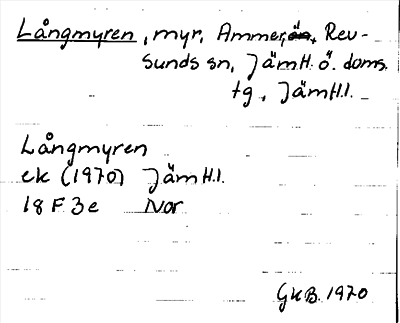 Långmyren, myr, Ammer, Rev-
sunds sn, Jämtl. ö. doms.
tg, Jämtl.l.
Långmyren
ek (1970) Jämtl.l.
18 F 3e Nor
GKB. 1970